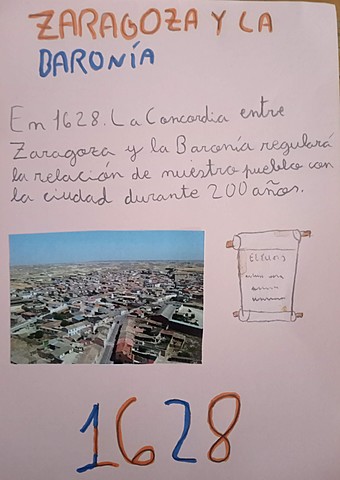 ZARAGOZA Y LA
BARONÍA
En 1628. La Concordia entre
Zaragoza y la Baronía regulará
la relación de nuestro pueblo con
la ciudad durante 200 años.
1628